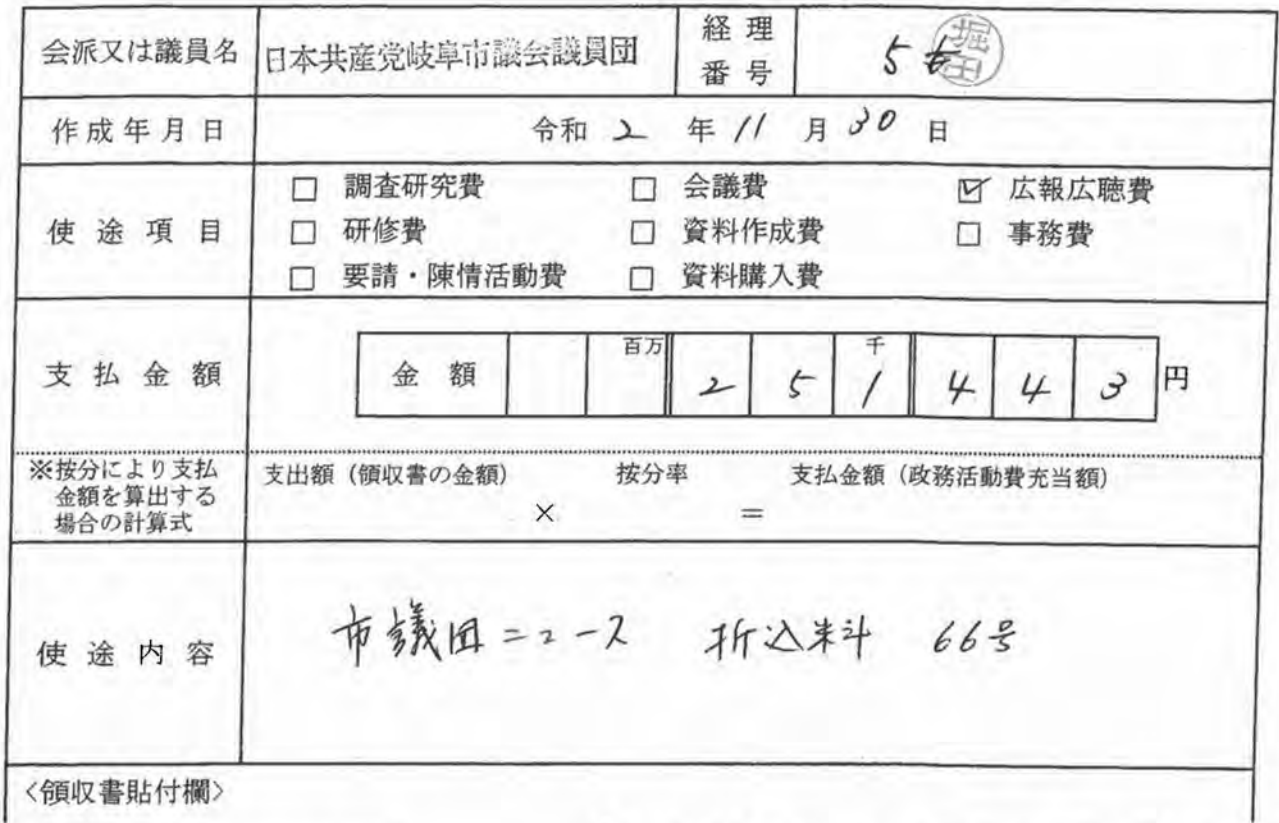 会派又は議員名 日本共産党岐阜市議会議員団 経理番号 5
堀田
作成年月日 令和 2 年 11 月 30 日
使途項目
□ 調査研究費 □ 会議費 ☑ 広報広聴費
□ 研修費 □ 資料作成費 □ 事務費
□ 要請・陳情活動費 □ 資料購入費
支払金額 金額 百万 2 5 千 1 4 4 3 円
※按分により支払金額を算出する場合の計算式
支出額（領収書の金額） 按分率 支払金額（政務活動費充当額）
× =
使途内容 市議団ニュース 折込料 66号
〈領収書貼付欄〉